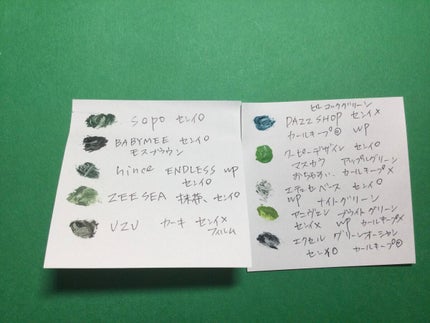 Sopo センイ○
BABYMEE センイ○
モスブラウン
hince ENDLESS WP
センイ○
ZEESEA 抹茶、センイ○
UZU カーキ センイ×
フィルム
ピーコックグリーン
DAZZ SHOP センイ×
カールキープ◎ WP
クーピーデザイン センイ○
マスカラ アップルグリーン
おちやすい、カールキープ×
エテュセベース センイ○
WP ナイトグリーン
ブライトグリーン
センイ× WP カールキープ×
エクセル グリーンオーシャン
センイ○ カールキープ◎